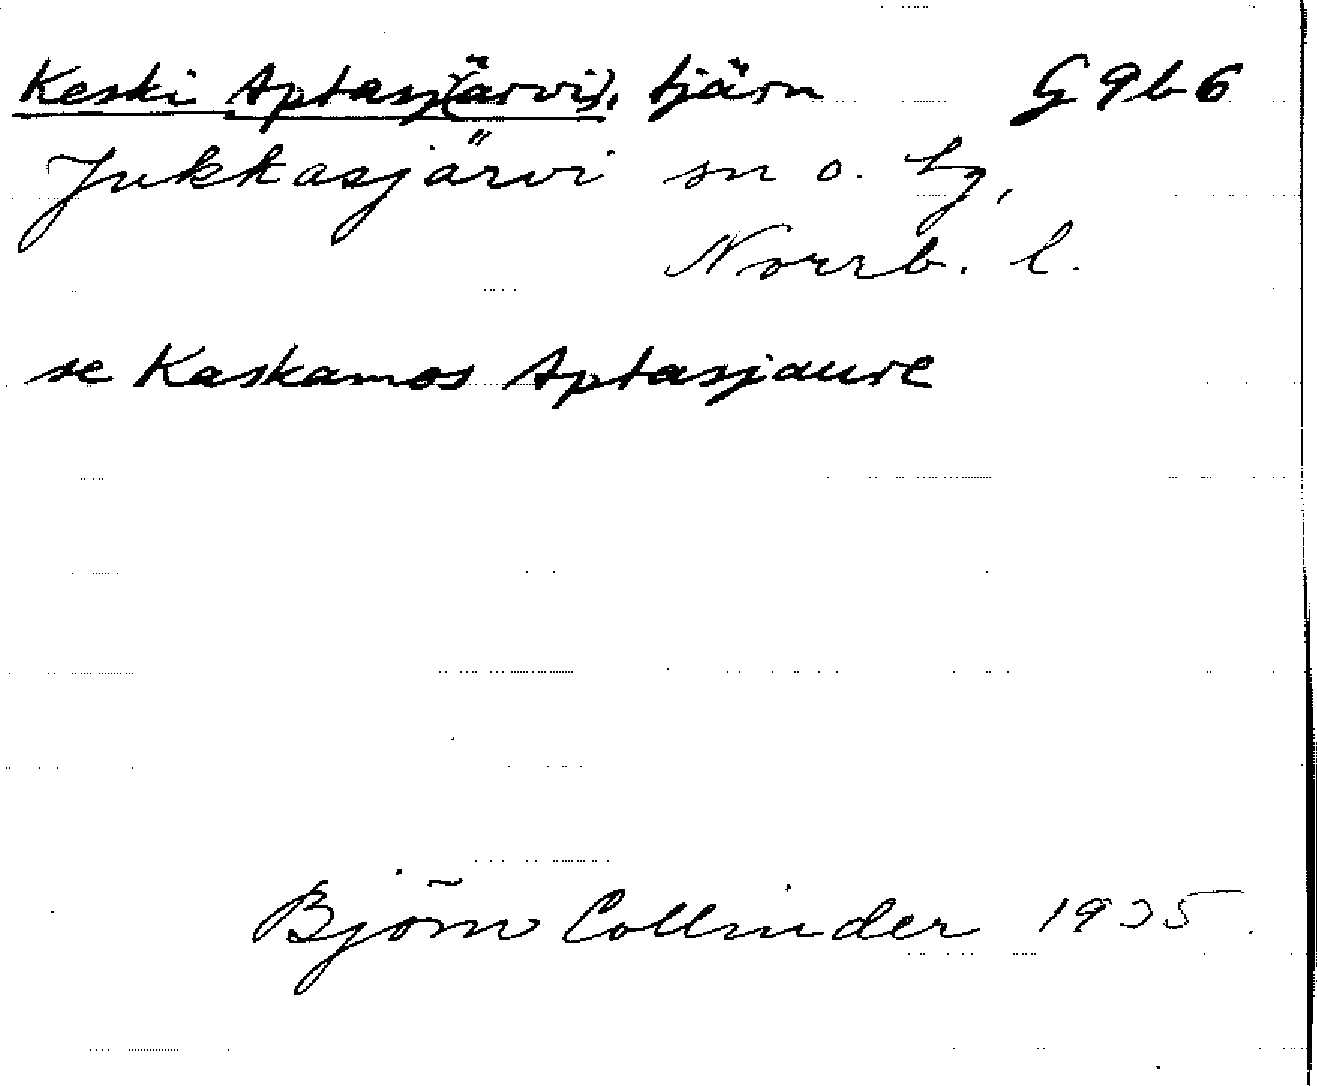 Keski Aptasj(ärvi), tjärn G 9 b 6
Jukkasjärvi sn o. tg,
Norrb. l.
se Kaskamos Aptasjaure
Björn Collinder 1935.